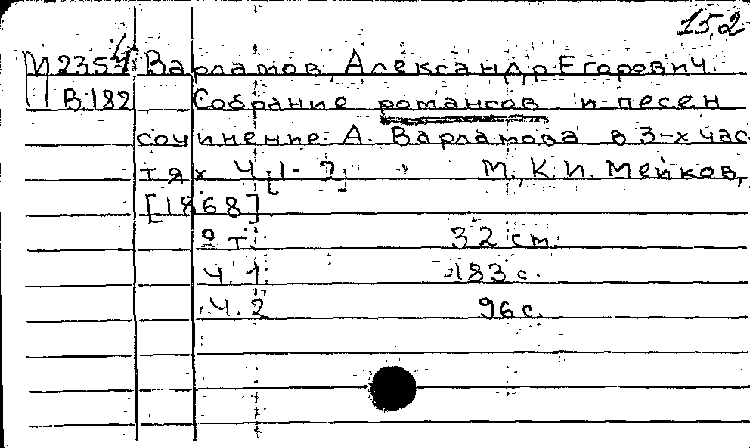 15,2
М 2354 Варламов, Александр Егорович.
В.182 Собрание романсов и песен
сочинение А. Варламова в 3-х час
тях Ч. [1-2] М., К.И. Мейков,
[1868]
2 т. 32 см.
Ч. 1. 183 с.
Ч. 2 96 с.